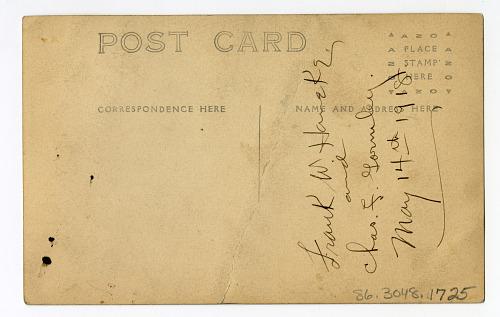 POST CARD
AZOA
A PLACE A
Z STAMP Z
O HERE O
AZOA
CORRESPONDENCE HERE
NAME AND ADDRESS HERE
Frank W.
and
Chas. F. Gormley.
May 14th 1918
86.3048.1725